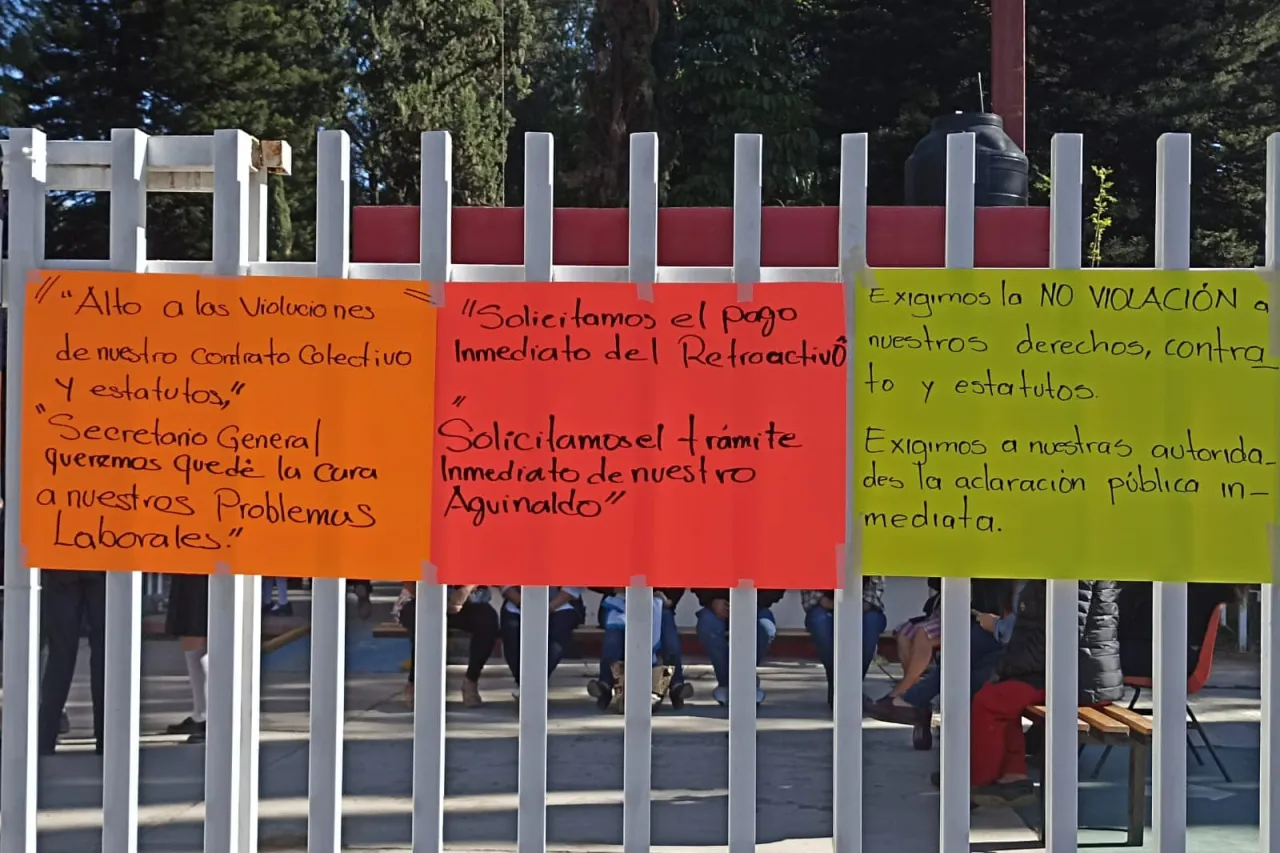 "Alto a las Violuciones
de nuestro contrato Colectivo
Y estatutos,"
"Secretario General
queremos quede la cara
a nuestros Problemas
Laborales."
"Solicitamos el pago
Inmediato del Retroactivo
"
Solicitamos el trámite
Inmediato de nuestro
Aguinaldo"
Exigimos la NO VIOLACIÓN a
nuestros derechos, contra_
to y estatutos.
Exigimos a nuestras autorida_
des la aclaración pública in_
mediata.